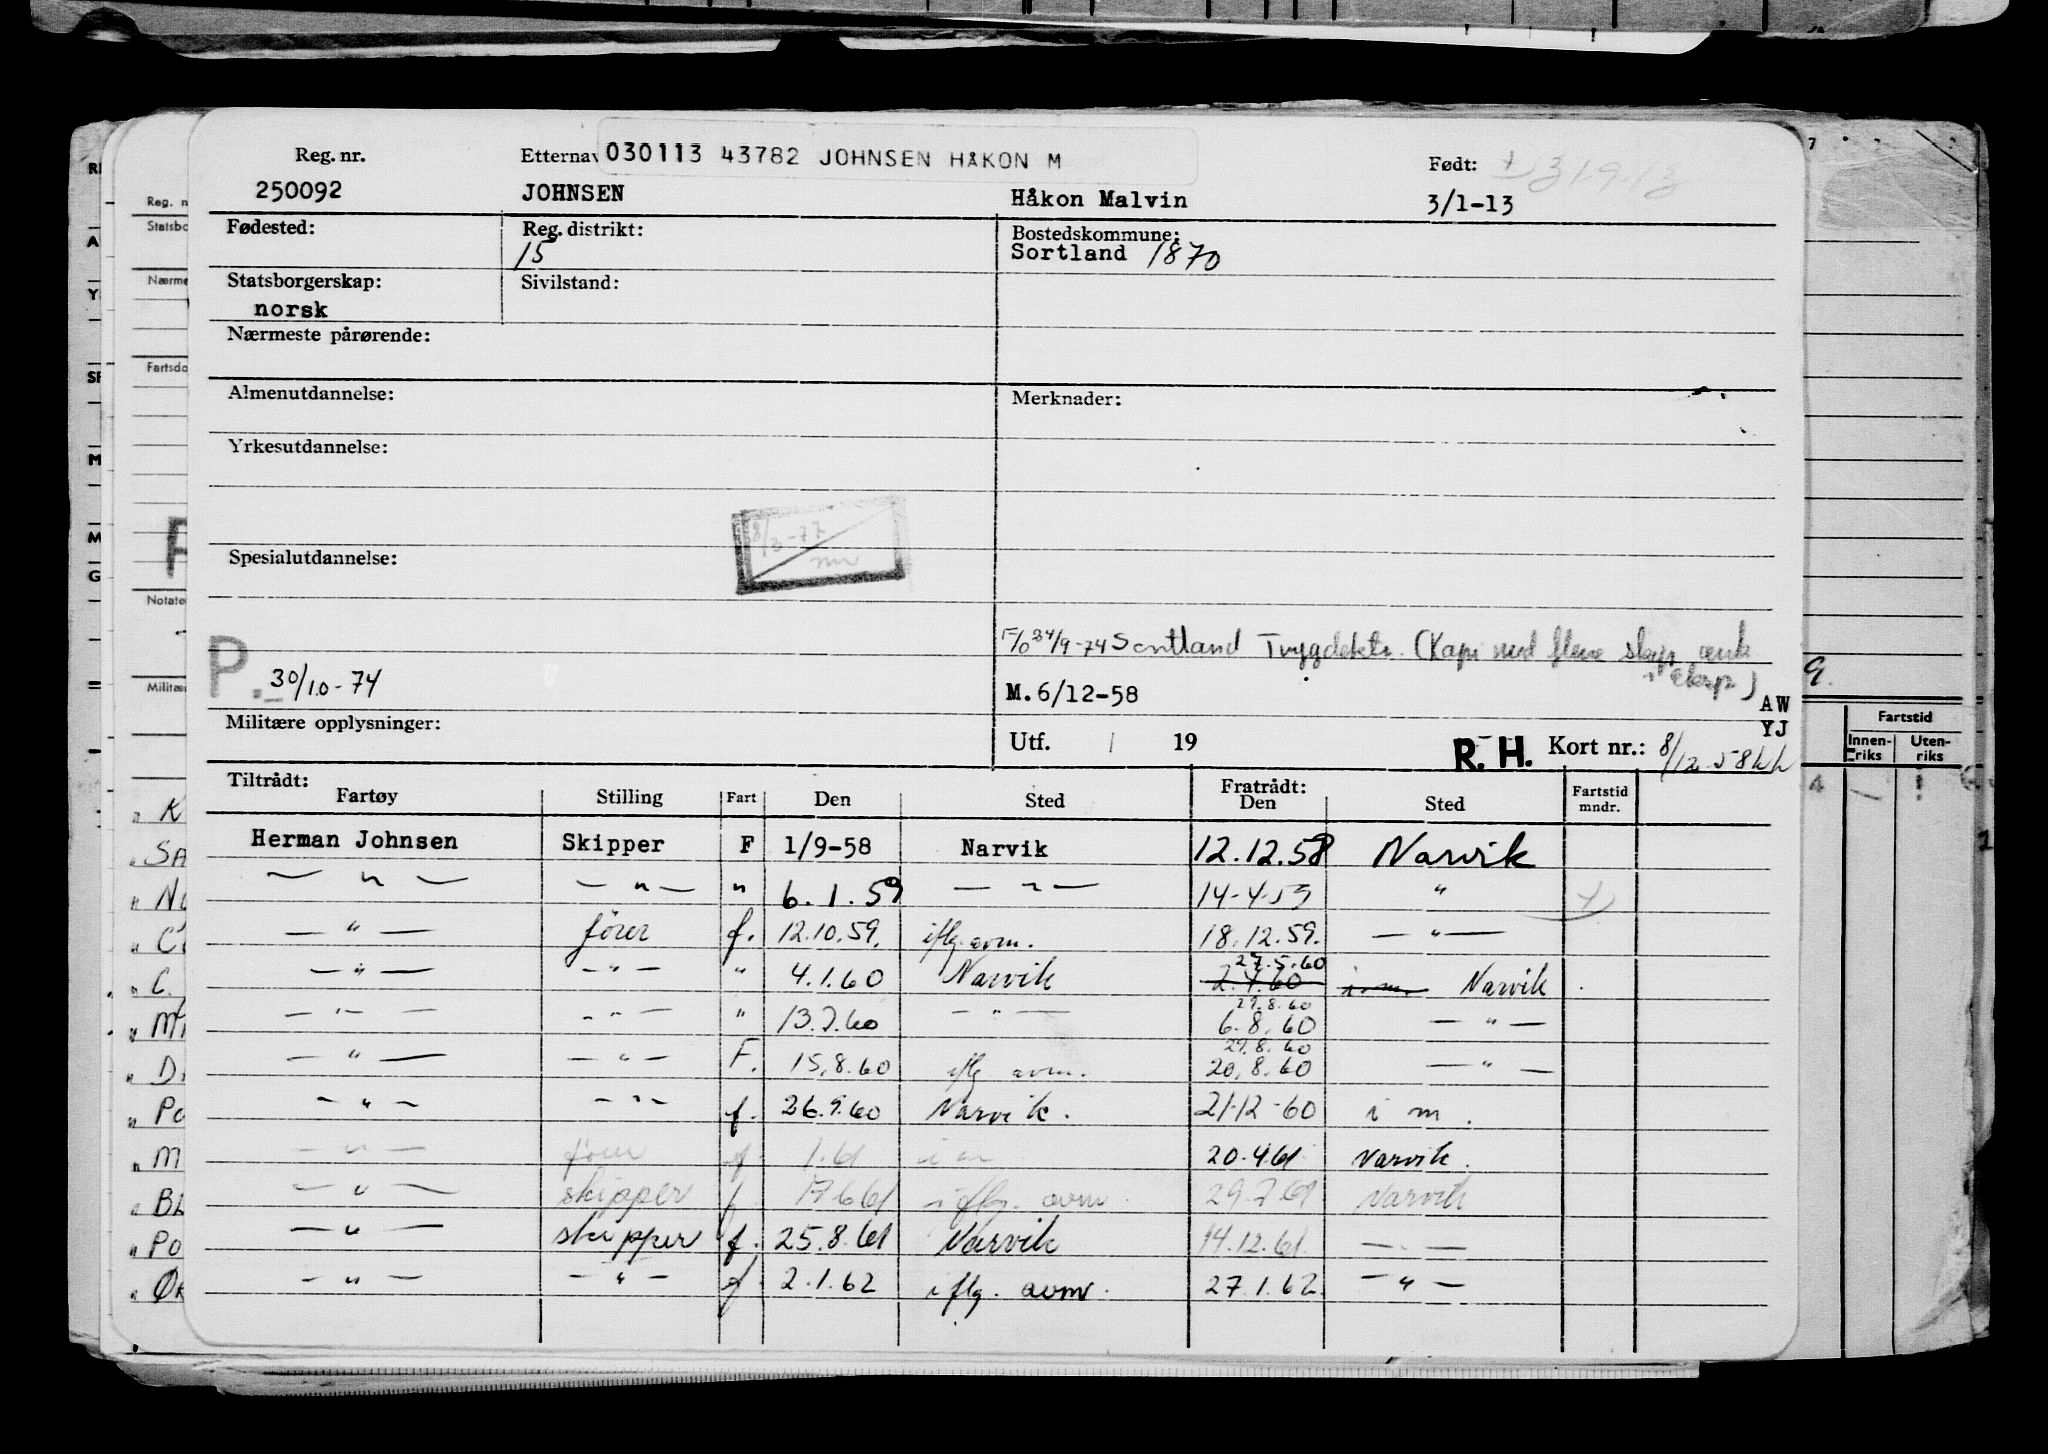 Reg. nr. Etternav 030113 43782 JOHNSEN HÅKON M Født:
250092 JOHNSEN Håkon Malvin 3/1-13
Fødested: Reg. distrikt: Bostedskommune:
15 Sortland 1870
Statsborgerskap: Sivilstand:
norsk
Nærmeste pårørende:
Almenutdannelse: Merknader:
Yrkesutdannelse:
8/3-77
Spesialutdannelse:
F/O 24/9-74 Sortland Trygdektr. (Kapi med flere
P. 30/10-74 M. 6/12-58 AW
Militære opplysninger: YJ
Utf. / 19 R. H. Kort nr.: 8/12-58
Tiltrådt: Fratrådt:
Fartøy Stilling Fart Den Sted Den Sted Fartstid mndr.
Herman Johnsen Skipper F 1/9-58 Narvik 12.12.58 Narvik
— " — — " — " 6.1.59 — " — 14-4-59 "
— " — fører f. 12.10.59. iflg. avm. 18.12.59. — " —
27.5.60
— " — — " — " 4.1.60 Narvik 2.4.60 i.m. Narvik
29.8.60
— " — — " — " 13.7.60 — " — 6.8.60 — " —
29.8.60
— " — — " — F. 15.8.60 iflg avm. 20.8.60 — " —
— " — — " — f. 26.9.60 Narvik. 21-12-60 i m.
— " — fører f 1.61 i m 20.4.61 Narvik.
— " — skipper f 17.6.61 iflg. avm. 29.7.61 Narvik
— " — skipper f. 25.8.61 Narvik 14.12.61. — " —
— " — — " — f 2.1.62 iflg. avm. 27.1.62. — " —
Reg. n
Statsbo
Nærme
Fartsdo
Notate
Militær
Fartstid
Innen-riks Uten-riks
" K
" SA
" C
" C.
" Po
" M
" Po